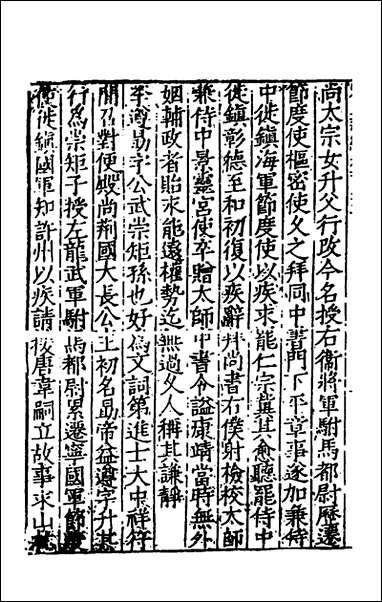 尚太宗女升父行改今名授右衞將軍駙馬都尉歷遷
節度使樞密使久之拜同中書門下平章事遂加兼侍
中徙鎮海軍節度使以疾求罷仁宗冀其愈聽罷侍中
徙鎮彰德至和初復以疾辭拜尚書右僕射檢校太師
兼侍中景靈宮使卒贈太師中書令謚康靖當時無外
姻輔政者貽求能遠權勢迄無過久人稱其謙靜
李遵勗字公武崇矩孫也好為文詞第進士大中祥符
間召對便殿尚荆國大長公主初名勗帝益遵字升其
行為崇矩子授左龍武軍駙馬都尉累遷寧國軍節度
使徙鎮國軍知許州以疾請援唐韋嗣立故事求山